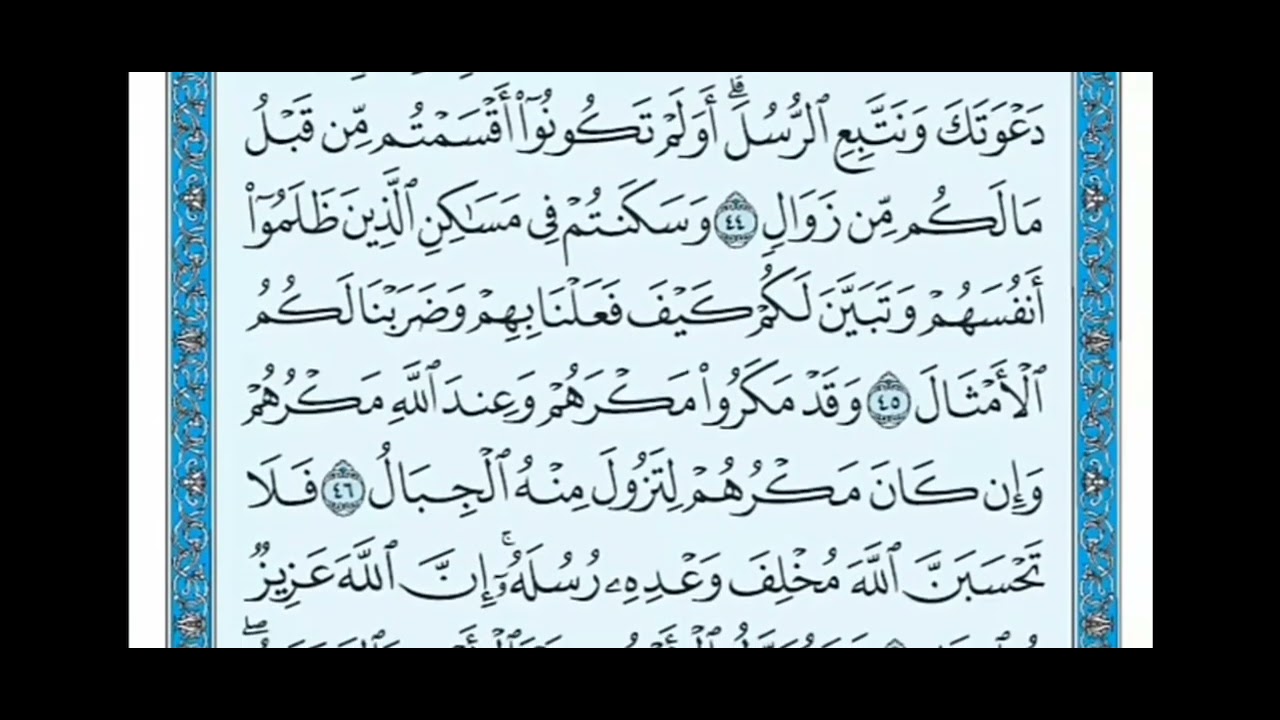 دَعْوَتَكَ وَنَتَّبِعِ ٱلرُّسُلَ ۗ أَوَلَمْ تَكُونُوٓا۟ أَقْسَمْتُم مِّن قَبْلُ
مَا لَكُم مِّن زَوَالٍ ٤٤ وَسَكَنتُمْ فِى مَسَـٰكِنِ ٱلَّذِينَ ظَلَمُوٓا۟
أَنفُسَهُمْ وَتَبَيَّنَ لَكُمْ كَيْفَ فَعَلْنَا بِهِمْ وَضَرَبْنَا لَكُمُ
ٱلْأَمْثَالَ ٤٥ وَقَدْ مَكَرُوا۟ مَكْرَهُمْ وَعِندَ ٱللَّهِ مَكْرُهُمْ
وَإِن كَانَ مَكْرُهُمْ لِتَزُولَ مِنْهُ ٱلْجِبَالُ ٤٦ فَلَا
تَحْسَبَنَّ ٱللَّهَ مُخْلِفَ وَعْدِهِۦ رُسُلَهُۥٓ ۚ إِنَّ ٱللَّهَ عَزِيزٌ